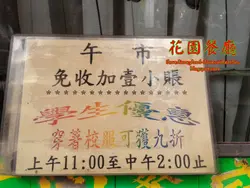 午市
免收加壹小賬
學生優惠
穿著校服可獲九折
上午11:00至中午2:00止
花園餐廳